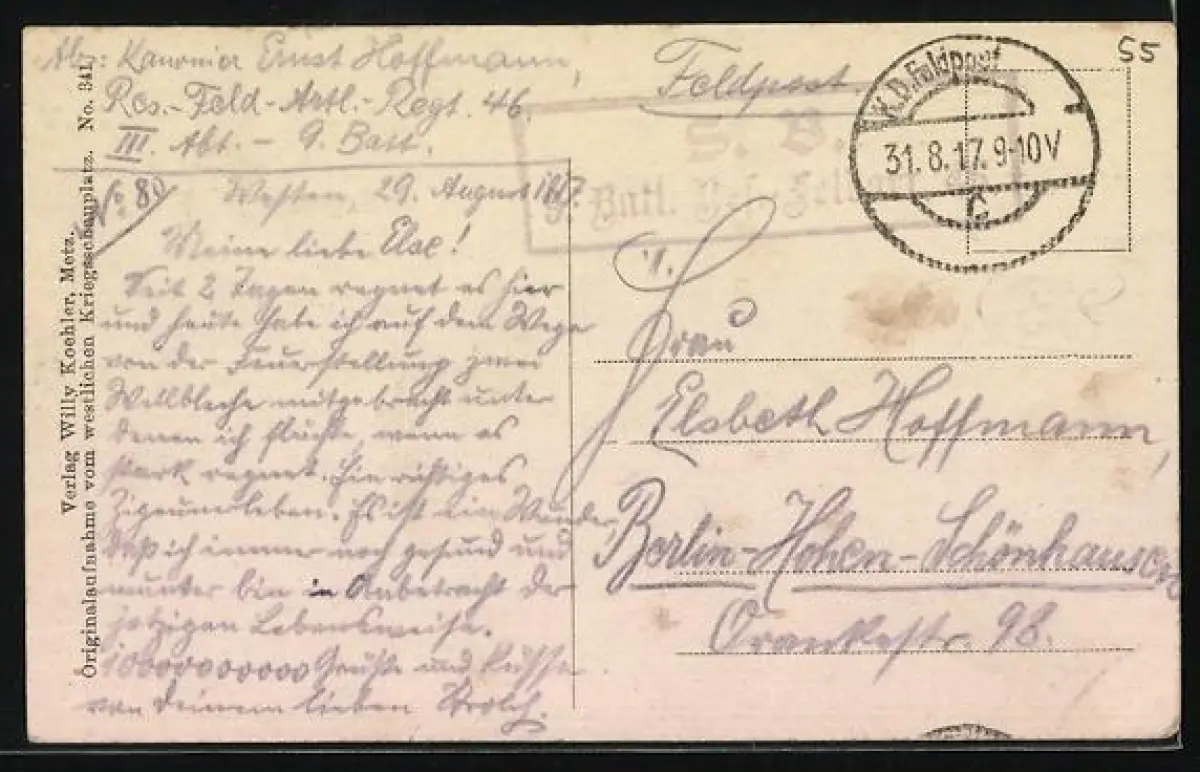 Abs: Kanonier Ernst Hoffmann,
Res.-Feld-Artl.-Regt. 46.
III. Abt. - 9. Batt.
No. 80
Westen, 29. August 1917.
Meine liebe Else!
Seit 2 Tagen regnet es hier
und heute habe ich auf dem Wege
von der Feuerstellung zwei
Wellbleche mitgebracht unter
denen ich flüchte, wenn es
stark regnet. Ein richtiges
Zigeunerleben. Es ist ein Wunder
daß ich immer noch gesund und
munter bin in Anbetracht der
jetzigen Lebensweise.
100000000000 Grüße und Küsse
von deinem lieben Strolch.
Verlag Willy Koehler, Metz.
Originalaufnahme vom westlichen Kriegsschauplatz. No. 341
Feldpost.
S. B.
Batt.
K.D. Feldpost
31.8.17. 9-10V
c
55
Frau
Elsbeth Hoffmann,
Berlin-Hohen-Schönhausen
Orankestr. 98.